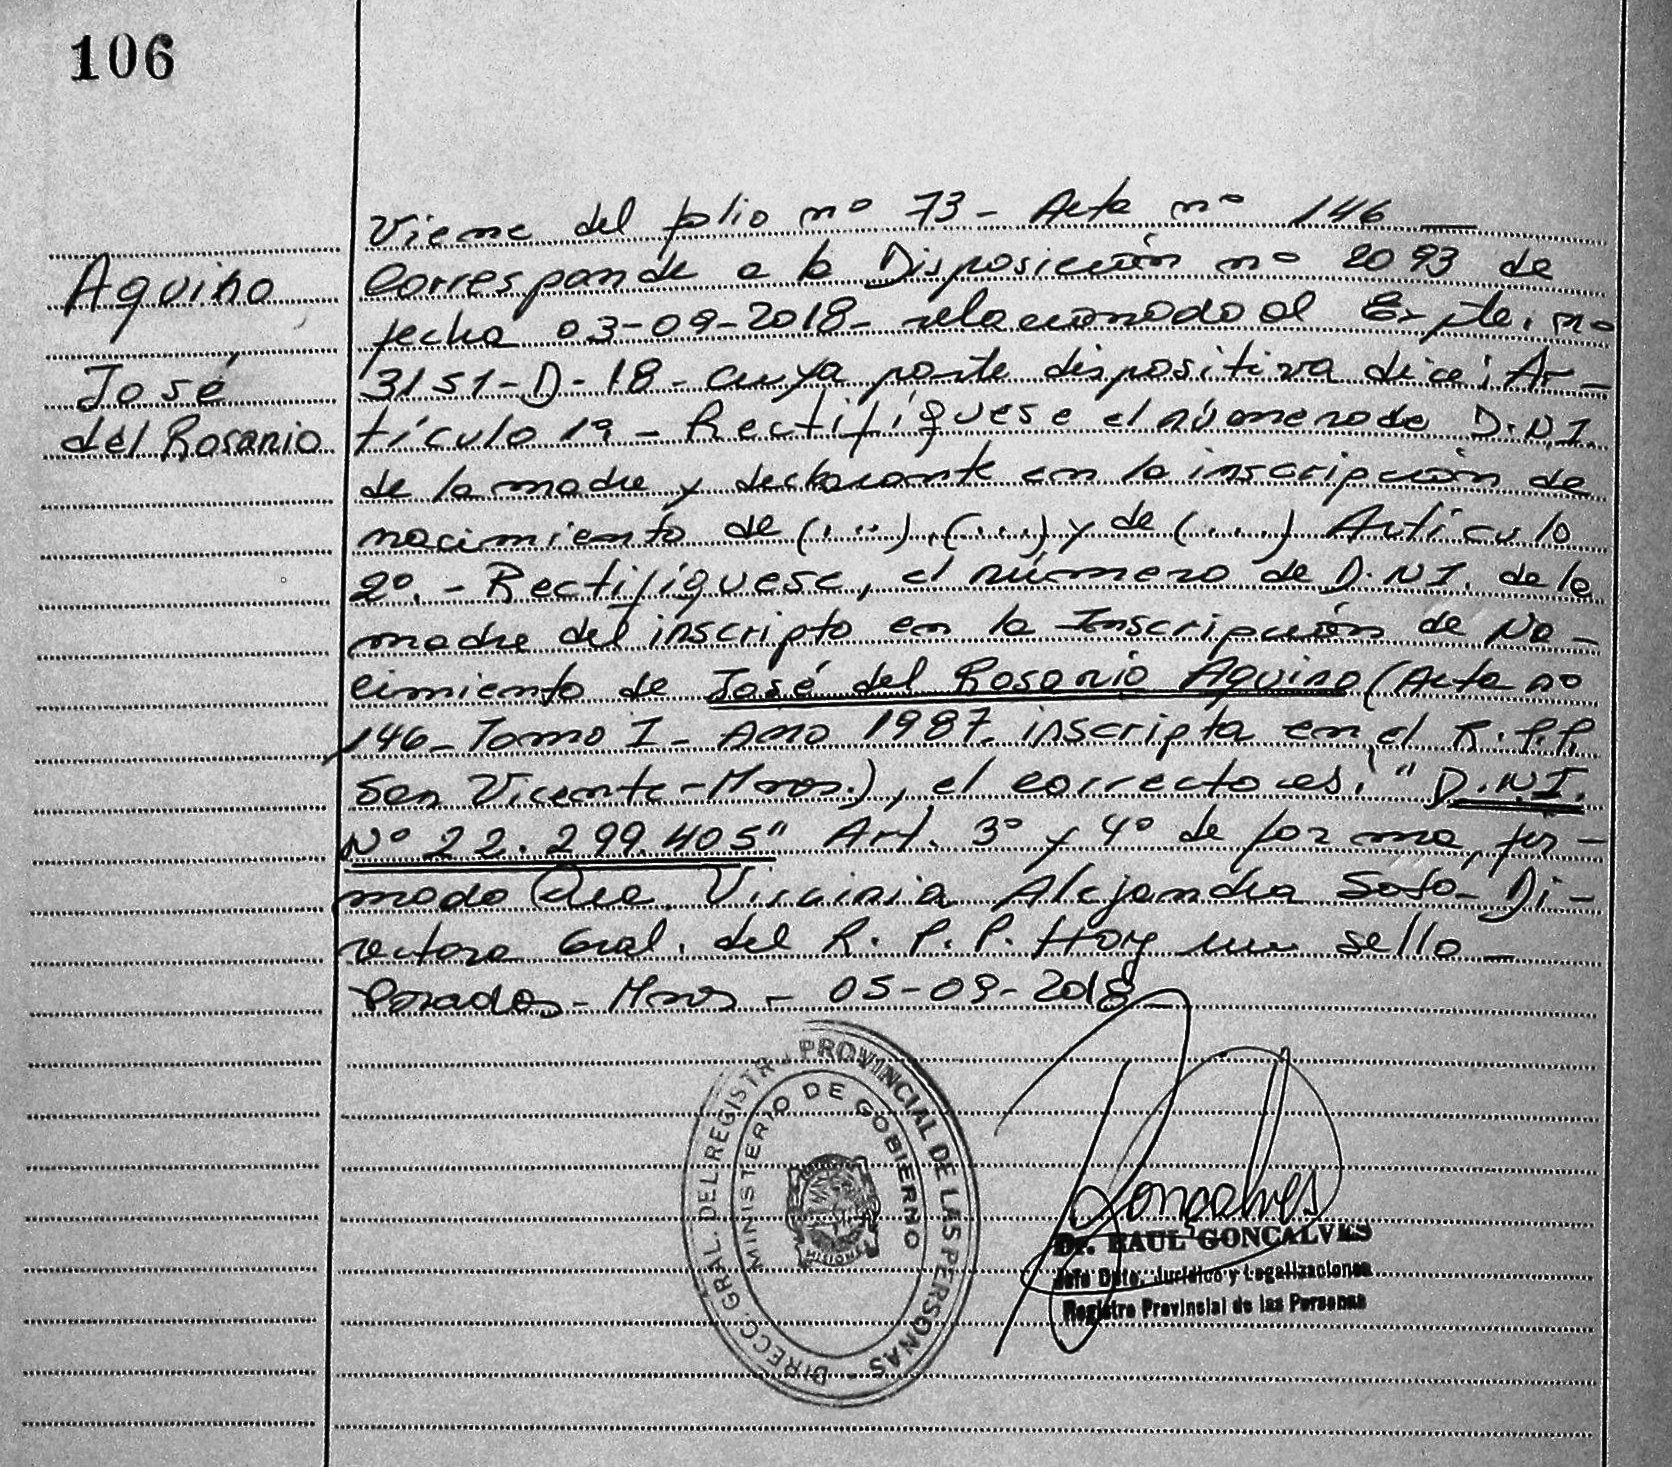 106
Viene del folio nº 73 - Acta nº 146 —
Corresponde a la Disposición nº 2093 de
fecha 03-09-2018- relacionado al Expte. nº
3151-D-18- cuya parte dispositiva dice: Ar-
tículo 1º - Rectifíquese el número de D.N.I.
de la madre y declarante en la inscripción de
nacimiento de (...), (...) y de (....) Artículo
2º. - Rectifíquese, el número de D.N.I. de la
madre del inscripto en la Inscripción de Na-
cimiento de José del Rosario Aquino (Acta nº
146- Tomo I - Año 1987- inscripta en el R.P.P.
San Vicente-Mnes.), el correcto es: "D.N.I.
Nº 22.299.405" Art. 3º y 4º de forma, fir-
mado Virginia Alejandra Soto- Di-
rectora Gral. del R. P. P. Hoy sello -
Posadas - Mnes - 05-09-2018
Aquino
José
del Rosario
DIRECC. GRAL. DEL REGISTRO PROVINCIAL DE LAS PERSONAS
MINISTERIO DE GOBIERNO
Goncalves
Dr. RAUL GONCALVES
Jefe Dpto. Jurídico y Legalizaciones
Registro Provincial de las Personas